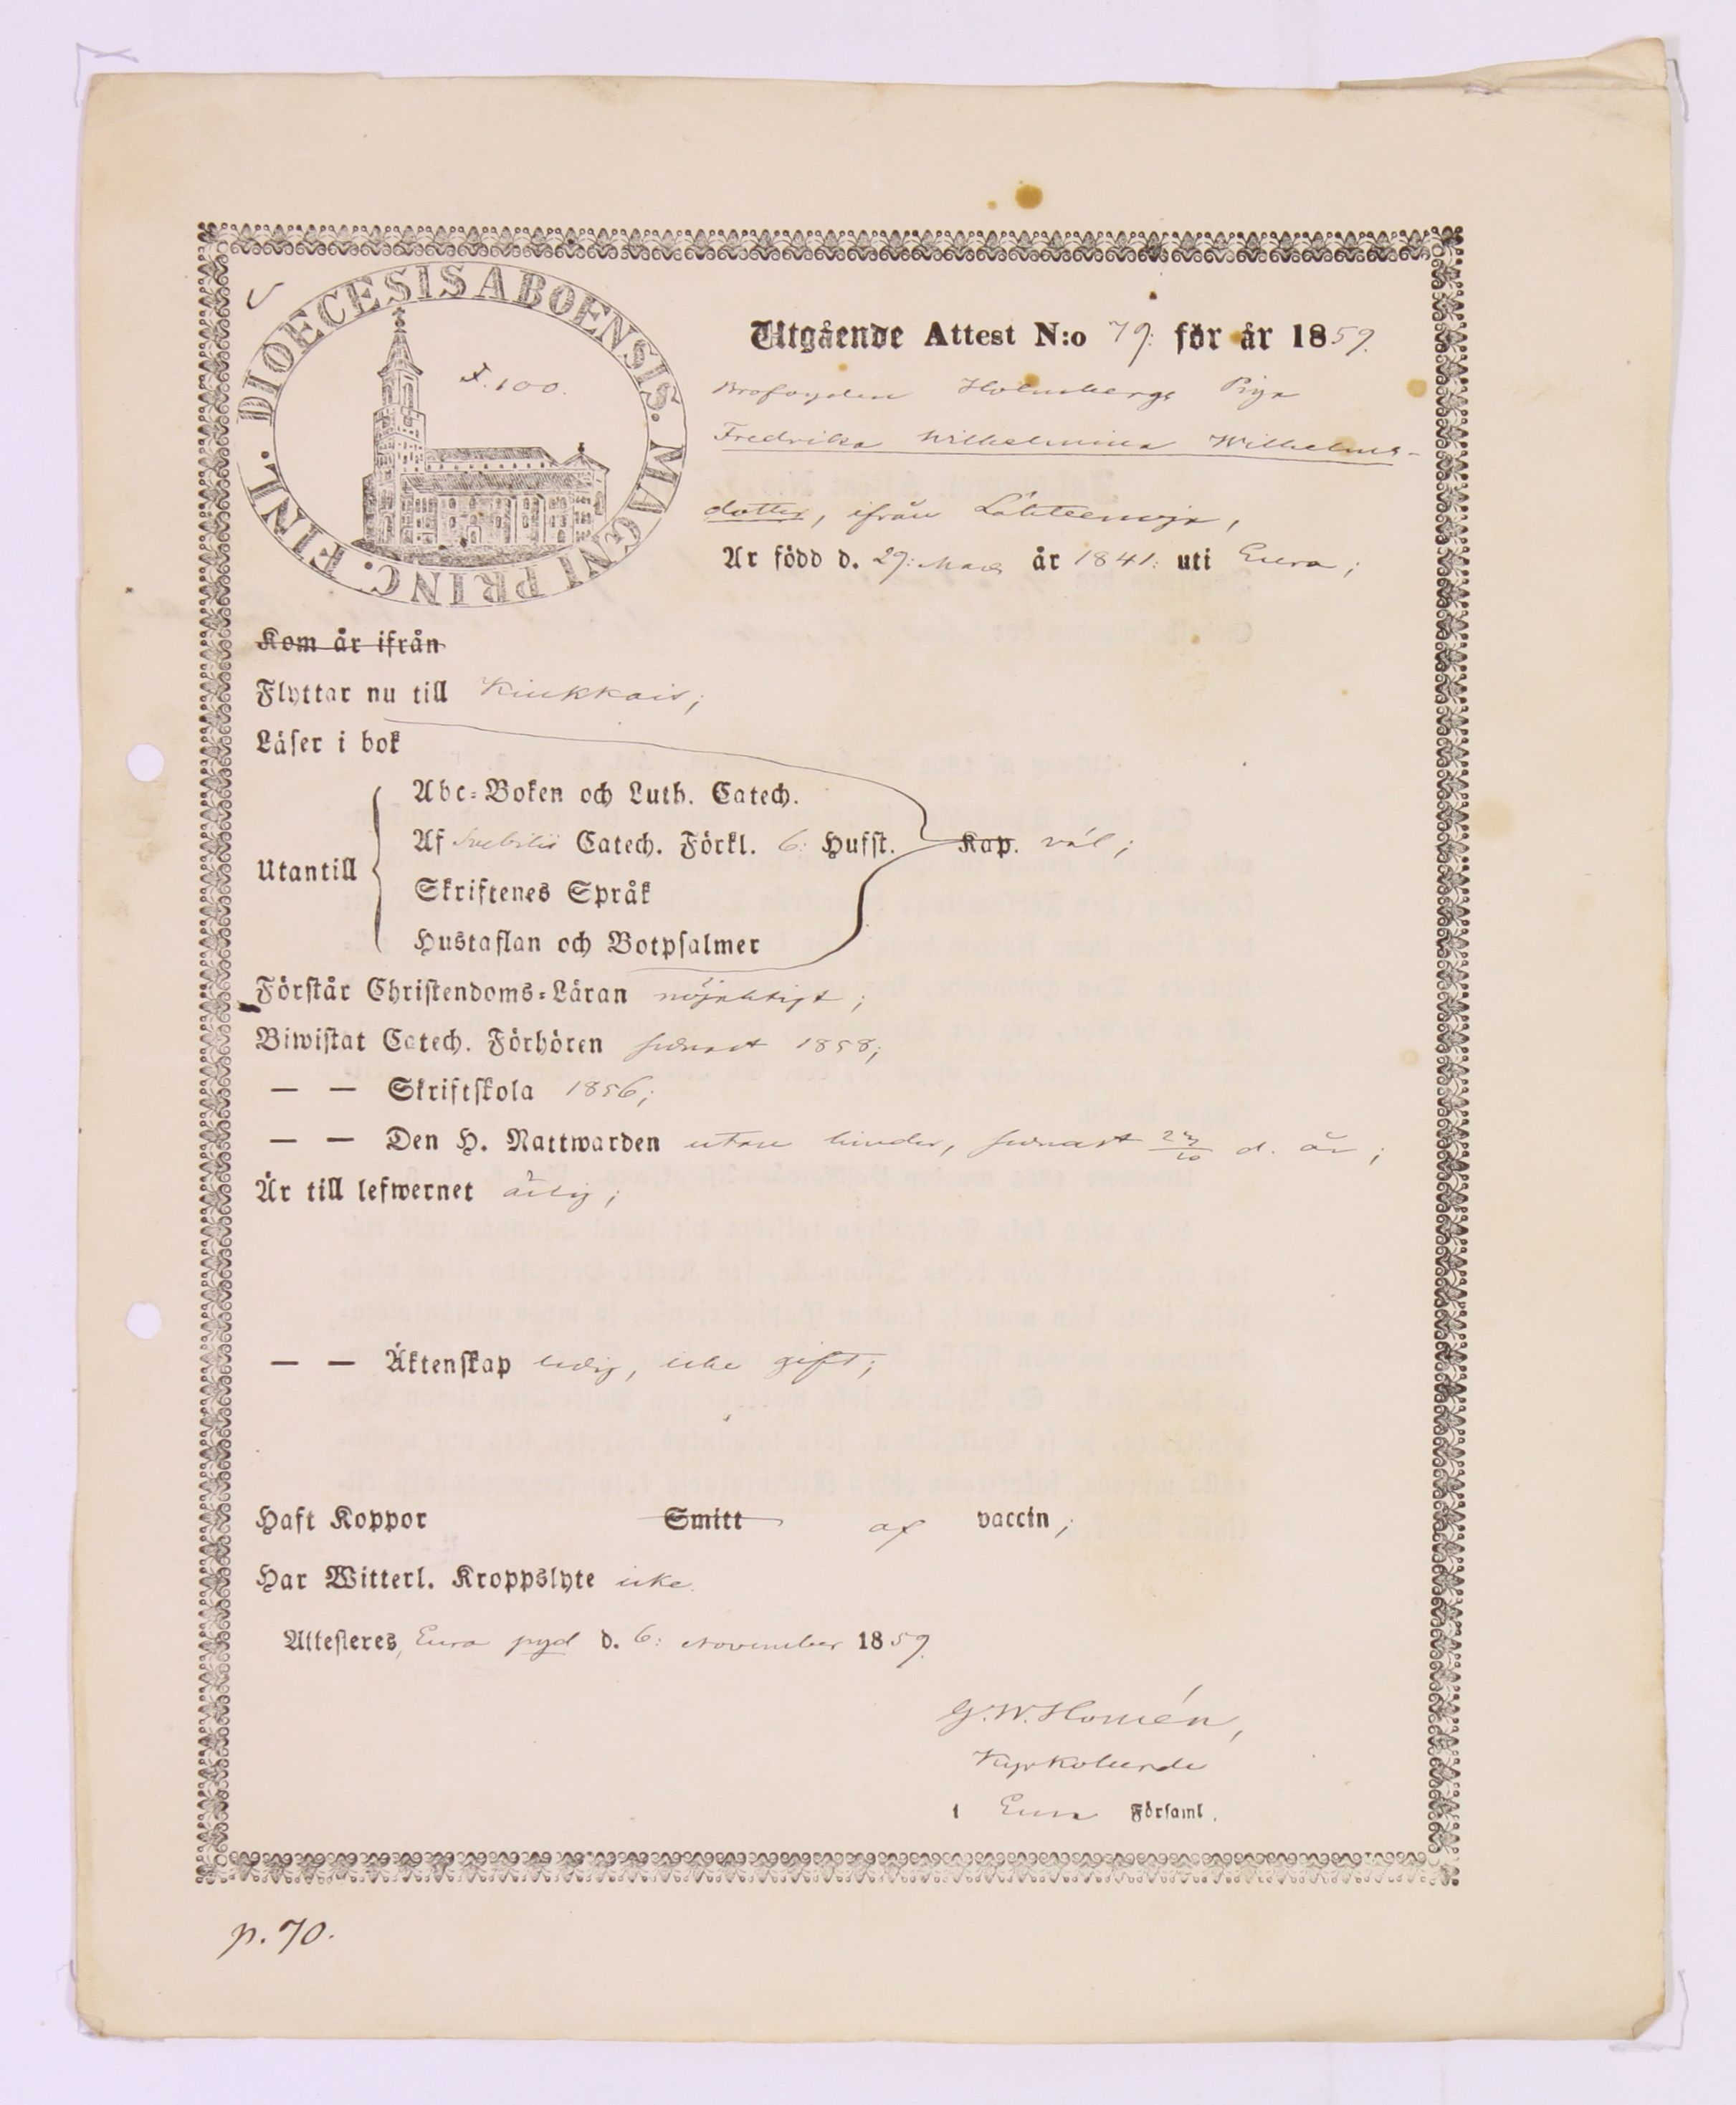 DIOECESIS ABOENSIS. MAGNI PRINC. FINL.
F. 100.
Utgående Attest N:o 79: för år 1859.
Holmbergs Piga
Fredrika Wilhelmina Wilhelms-
dotter, ifrån
Är född d. 29: Mars år 1841: uti Eura;
Kom år ifrån
Flyttar nu till Kiukkais;
Läser i bok
Abc-Boken och Luth. Catech.
Utantill Af Svebilii Catech. Förkl. 6: Hufst. Kap. väl;
Skriftenes Språk
Hustaflan och Botpsalmer
Förstår Christendoms-Läran nöjaktigt;
Biwistat Catech. Förhören senast 1858;
— — Skriftskola 1856;
— — Den H. Nattwarden utan hinder, senast 23/10 d. år;
Är till lefwernet ärlig;
— — Äktenskap ledig, icke gift;
Haft Koppor Smitt af vaccin;
Har Witterl. Kroppslyte icke.
Attesteres, Eura pgd d. 6: November 1859.
G. W. Homén,
Kyrkoherde
i Eura Församl.
p. 70.